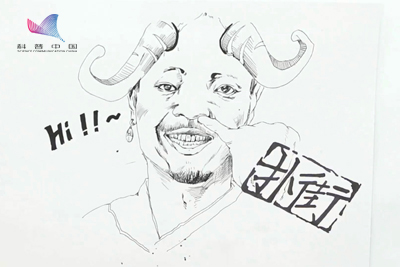 科普中国
SCIENCE COMMUNICATION CHINA
Hi!!~
扑街